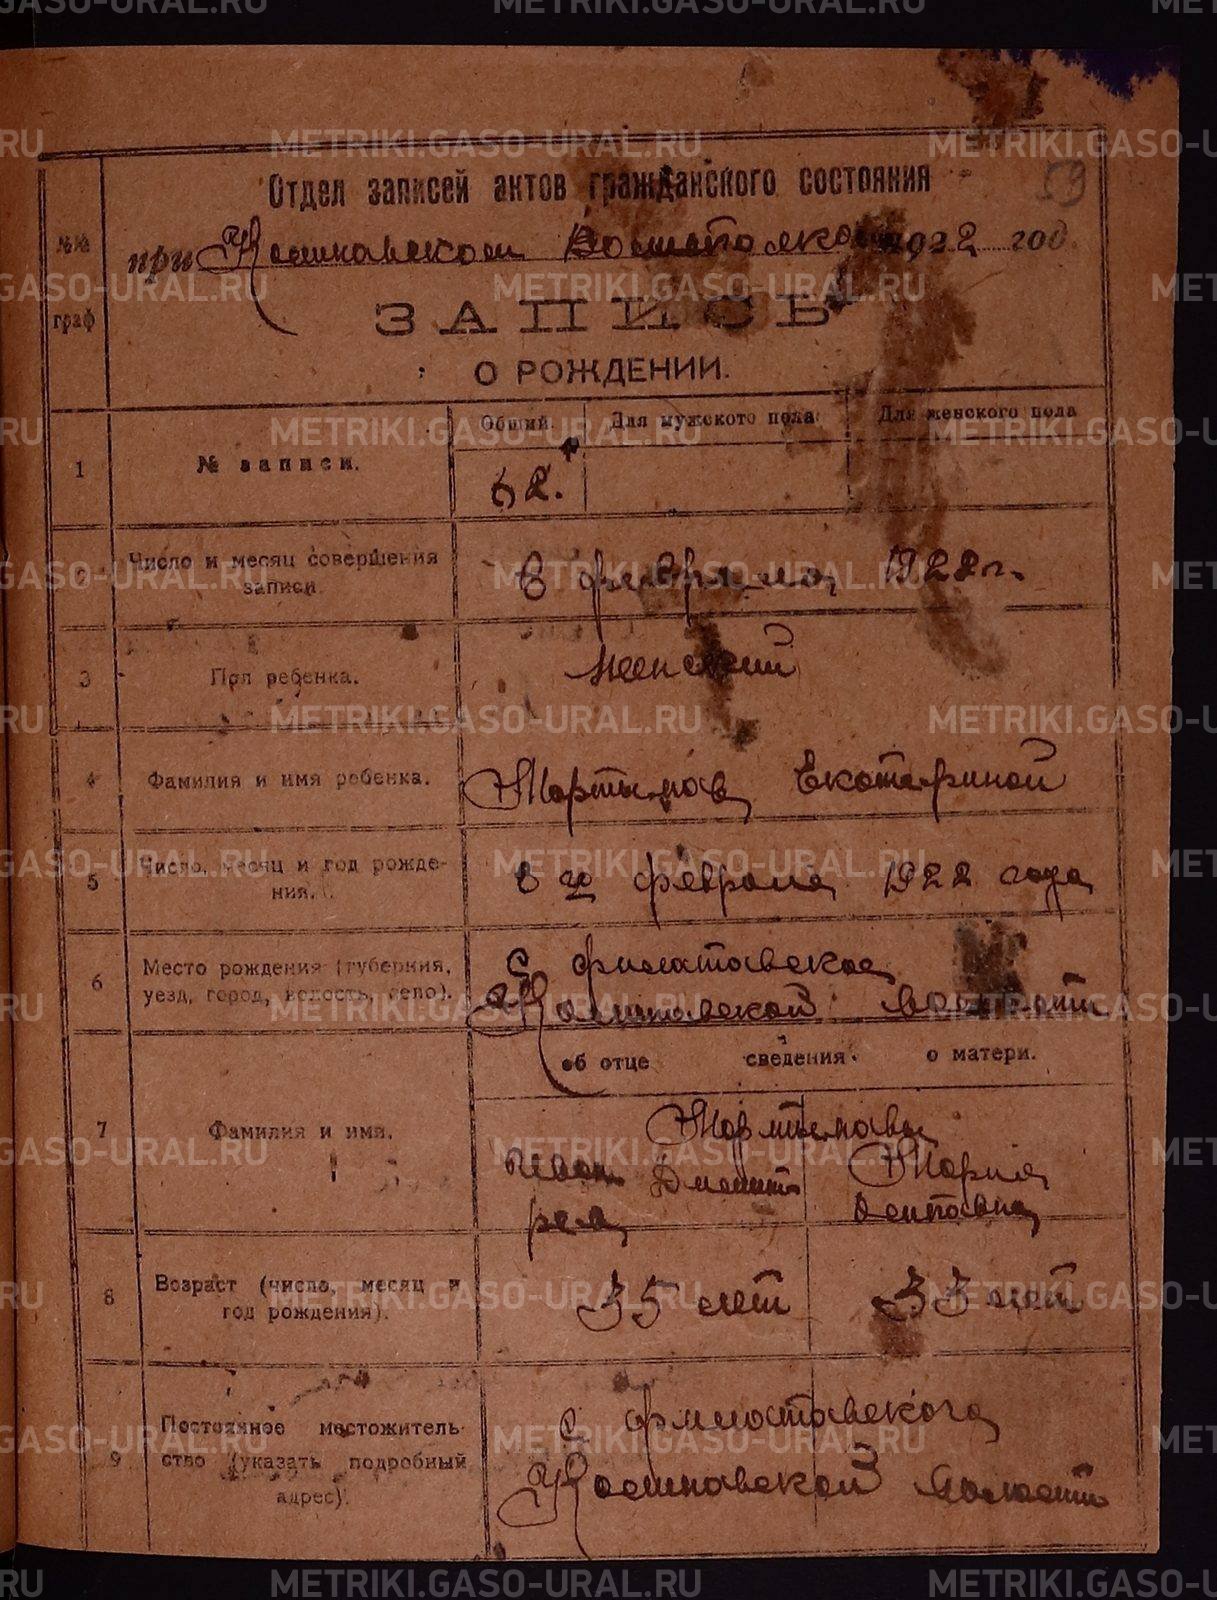 METRIKI.GASO-URAL.RU
59
Отдел записей актов гражданского состояния
при 1922 год.
№№ граф
ЗАПИСЬ
О РОЖДЕНИИ.
Общий. Для мужского пола Для женского пола
1 № записи. 62.
2 Число и месяц совершения
записи 8 февраля 1922 г.
3 Пол ребенка. женский
4 Фамилия и имя ребенка. Екатериной
5 Число, месяц и год рожде-
ния. 8 го февраля 1922 года
6 Место рождения (губерния,
уезд, город, волость, село). С филатовское
волости
об отце сведения о матери.
7 Фамилия и имя.
Иван Дмит Мария
риев
8 Возраст (число, месяц и
год рождения). 35 лет 33 лет
9 Постоянное местожитель-
ство (указать подробный
адрес). С филатовского
волости